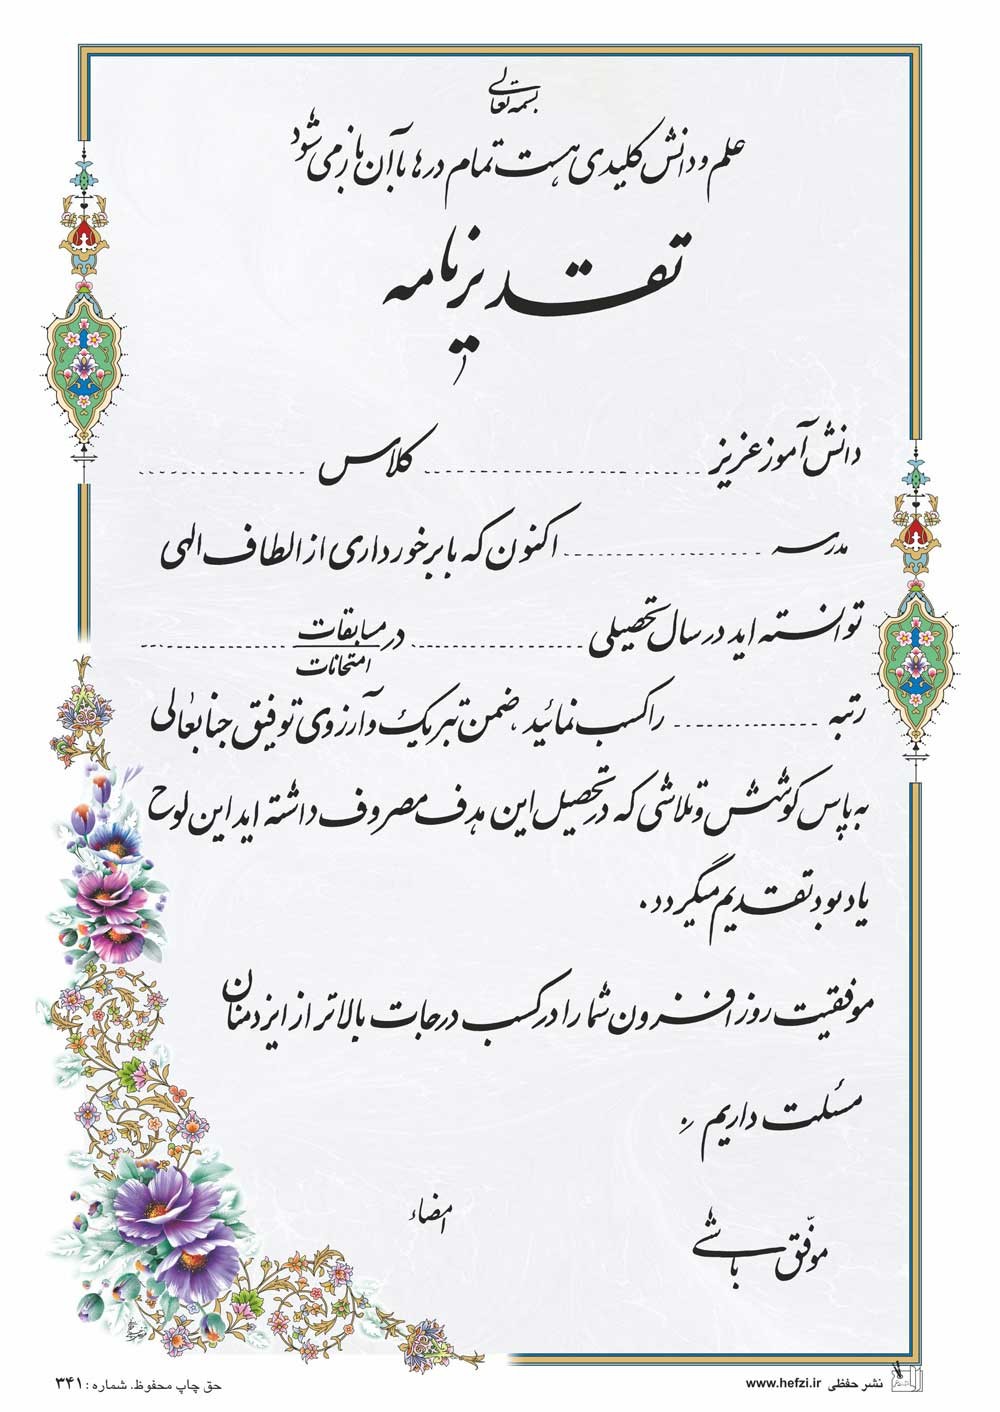 بسمه تعالی
علم و دانش کلیدی هست تمام درها با آن باز می شود
تقدیرنامه
دانش آموز عزیز ........................ کلاس ...............
مدرسه .................. اکنون که با برخورداری از الطاف الهی
توانسته اید در سال تحصیلی ............... در مسابقات ...............
امتحانات
رتبه ............... را کسب نمائید ، ضمن تبریک و آرزوی توفیق جنابعالی
به پاس کوشش و تلاشی که در تحصیل این هدف مصروف داشته اید این لوح
یادبود تقدیم میگردد .
موفقیت روز افزون شما را در کسب درجات بالاتر از ایزد منان
مسئلت داریم .
امضاء
موفّق باشی
نشر حفظی www.hefzi.ir
حق چاپ محفوظ. شماره: ۳۴۱